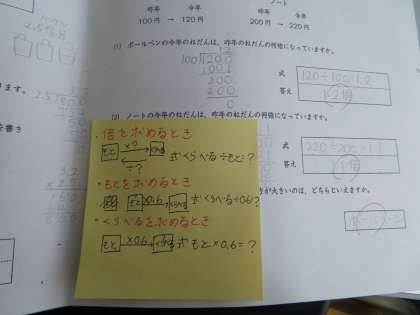 昨年 今年
100円 → 120円
ノート
昨年 今年
200円 → 220円
(1) ボールペンの今年のねだんは、昨年のねだんの何倍になっていますか。
1.2
100)120.0
100
200
200
0
式
120÷100=1.2
答え
1.2倍
(2) ノートの今年のねだんは、昨年のねだんの何倍になっていますか。
式
220÷200=1.1
答え
1.1倍
が大きいのは、どちらといえますか。
ボールペン
・倍を求めるとき
もと ×? くらべる
÷?
式 くらべる÷もと=?
・もとを求めるとき
もと ×0.6 くらべる 式 くらべる÷0.6=?
・くらべるを求めるとき
もと ×0.6 くらべる 式 もと×0.6=?